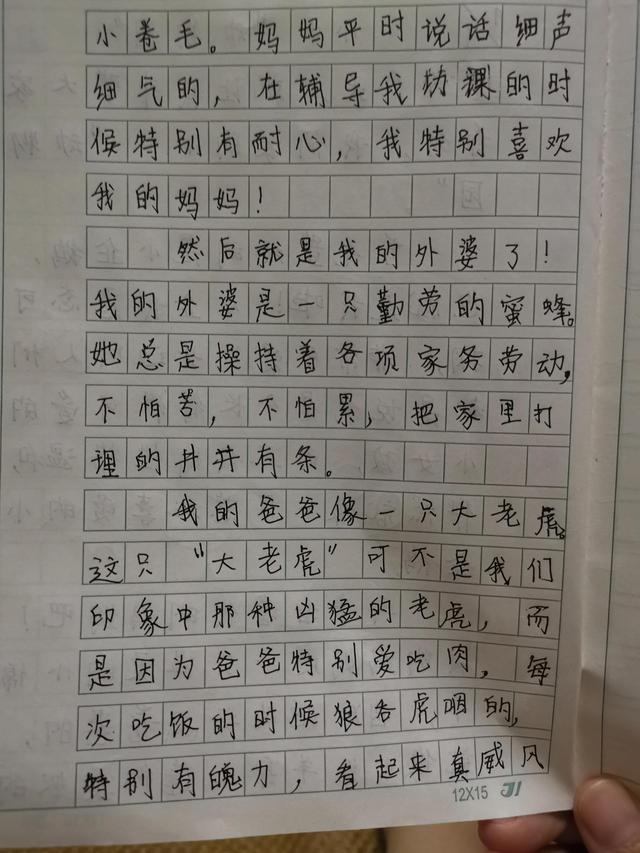 小卷毛。妈妈平时说话细声
细气的,在辅导我功课的时
候特别有耐心,我特别喜欢
我的妈妈!
然后就是我的外婆了!
我的外婆是一只勤劳的蜜蜂。
她总是操持着各项家务劳动,
不怕苦,不怕累,把家里打
理的井井有条。
我的爸爸像一只大老虎。
这只“大老虎”可不是我们
印象中那种凶猛的老虎,而
是因为爸爸特别爱吃肉,每
次吃饭的时候狼吞虎咽的,
特别有魄力,看起来真威风
12X15 JI